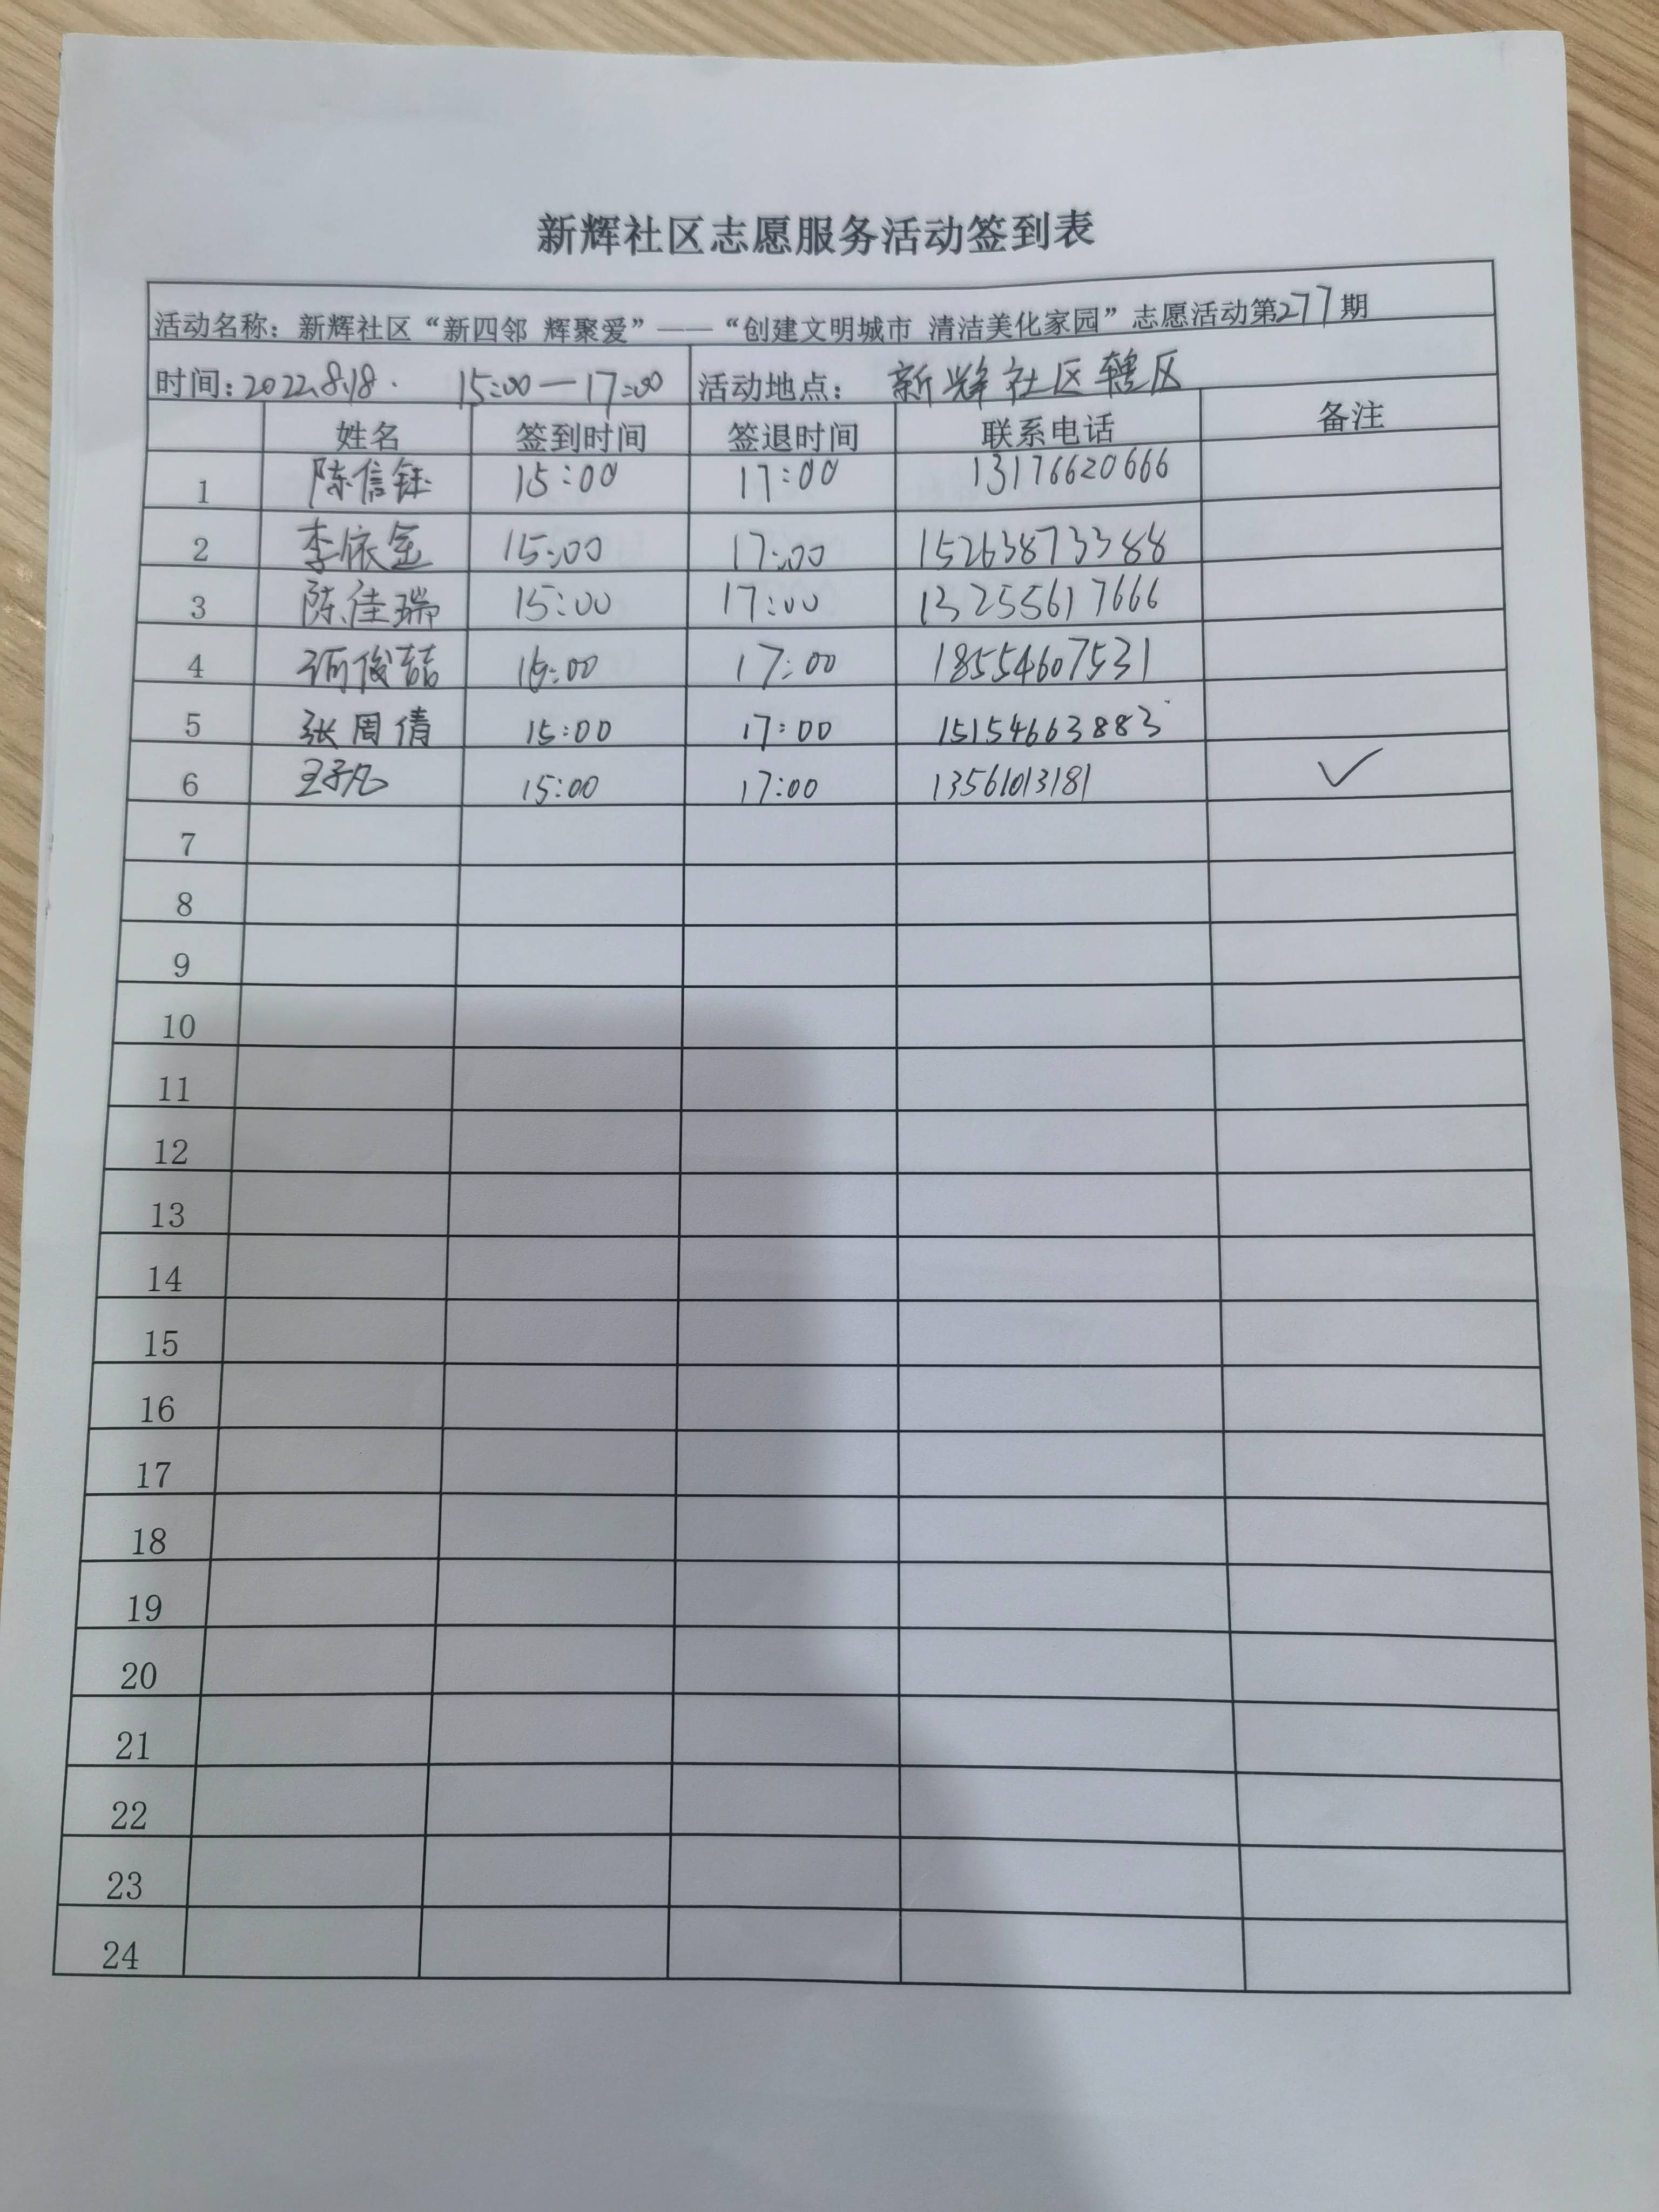 新辉社区志愿服务活动签到表
活动名称：新辉社区“新四邻 辉聚爱”——“创建文明城市 清洁美化家园”志愿活动第277期
时间：2022.8.18. 15:00—17:00 活动地点： 新辉社区辖区
姓名 签到时间 签退时间 联系电话 备注
1 陈信钰 15:00 17:00 13176620666
2 李依金 15:00 17:00 15263873388
3 陈佳瑞 15:00 17:00 13255617666
4 俊喆 15:00 17:00 18554607531
5 张周倩 15:00 17:00 15154663883
6 王子凡 15:00 17:00 13561013181 ✓
7
8
9
10
11
12
13
14
15
16
17
18
19
20
21
22
23
24